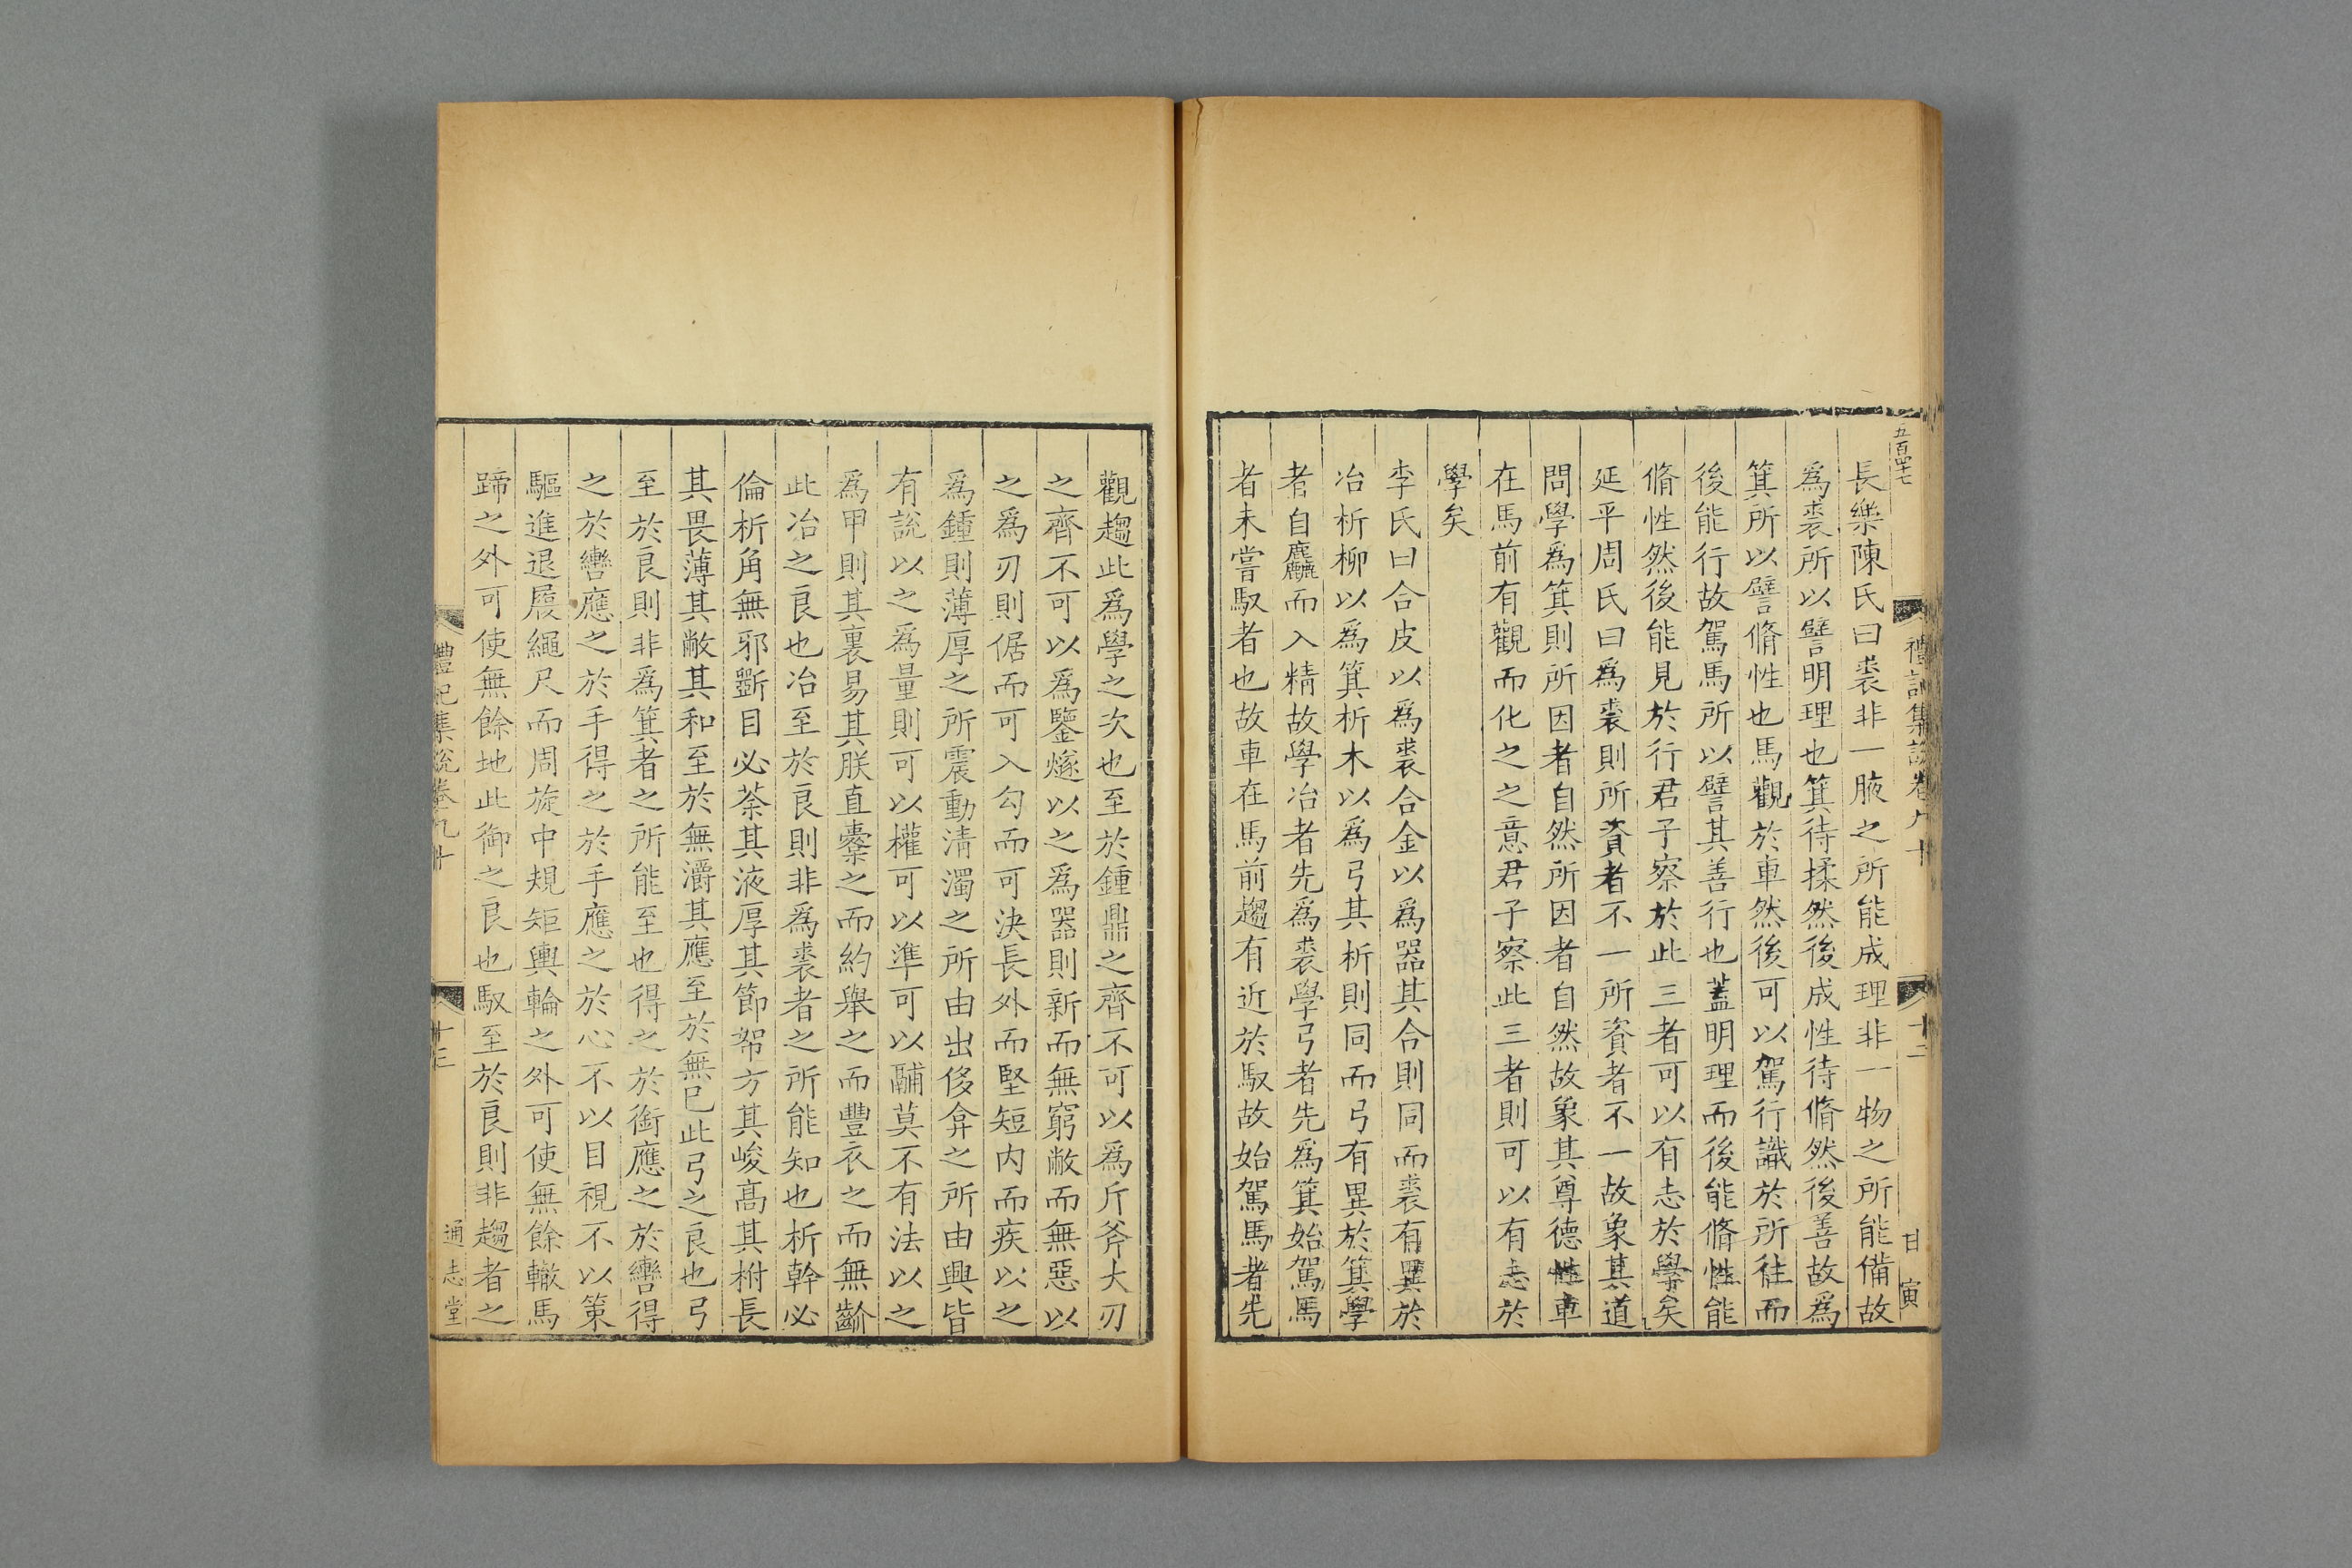 五百四十七
禮記集說卷九十
十二
甘寅
長樂陳氏曰裘非一腋之所能成理非一物之所能備故
爲裘所以譬明理也箕待揉然後成性待脩然後善故爲
箕所以譬脩性也馬觀於車然後可以駕行識於所往而
後能行故駕馬所以譬其善行也蓋明理而後能脩性能
脩性然後能見於行君子察於此三者可以有志於學矣
延平周氏曰爲裘則所資者不一所資者不一故象其道
問學爲箕則所因者自然所因者自然故象其尊德性車
在馬前有觀而化之之意君子察此三者則可以有志於
學矣
李氏曰合皮以爲裘合金以爲器其合則同而裘有異於
冶析柳以爲箕析木以爲弓其析則同而弓有異於箕學
者自麤而入精故學冶者先爲裘學弓者先爲箕始駕馬
者未嘗馭者也故車在馬前趨有近於馭故始駕馬者先
觀趨此爲學之次也至於鍾鼎之齊不可以爲斤斧大刃
之齊不可以爲鑒燧以之爲器則新而無窮敝而無惡以
之爲刃則倨而可入勾而可決長外而堅短内而疾以之
爲鍾則薄厚之所震動清濁之所由出侈弇之所由興皆
有說以之爲量則可以權可以準可以鬴莫不有法以之
爲甲則其裏易其朕直櫜之而約舉之而豐衣之而無齘
此冶之良也冶至於良則非爲裘者之所能知也析幹必
倫析角無邪斲目必荼其液厚其節帤方其峻高其柎長
其畏薄其敝其和至於無灂其應至於無已此弓之良也弓
至於良則非爲箕者之所能至也得之於銜應之於轡得
之於轡應之於手得之於手應之於心不以目視不以策
驅進退履繩尺而周旋中規矩輿輪之外可使無餘轍馬
蹄之外可使無餘地此御之良也馭至於良則非趨者之
禮記集說卷九十
十三
通志堂